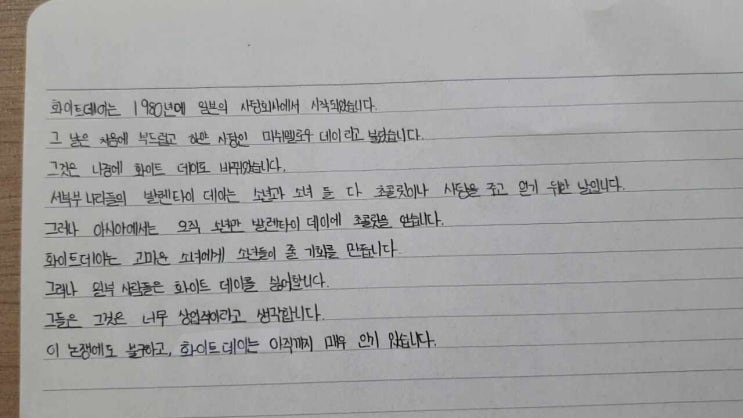 화이트데이는 1980년에 일본의 사탕회사에서 시작되었습니다.
그 날은 처음에 부드럽고 하얀 사탕인 마쉬멜로우 데이라고 불렸습니다.
그것은 나중에 화이트 데이로 바뀌었습니다.
서북부 나라들의 발렌타이 데이는 소년과 소녀 둘 다 초콜릿이나 사탕을 주고 얻기 위한 날입니다.
그러나 아시아에서는 오직 소년만 발렌타이 데이에 초콜릿을 얻습니다.
화이트데이는 고마운 소녀에게 소년들이 줄 기회를 만듭니다.
그러나 일부 사람들은 화이트 데이를 싫어합니다.
그들은 그것은 너무 상업적이라고 생각합니다.
이 논쟁에도 불구하고, 화이트데이는 아직까지 매우 인기 있습니다.